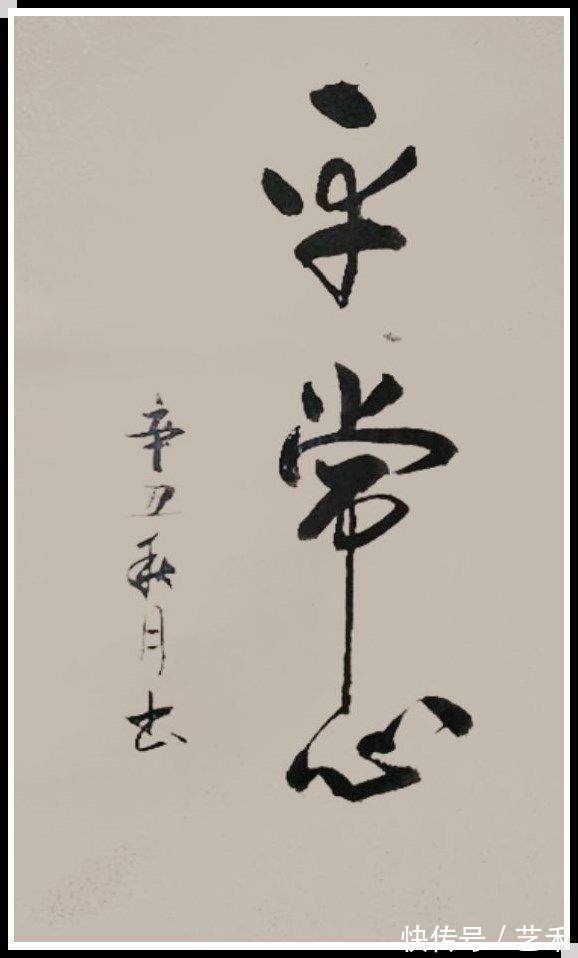 平常心
辛丑秋月书
快传号/艺